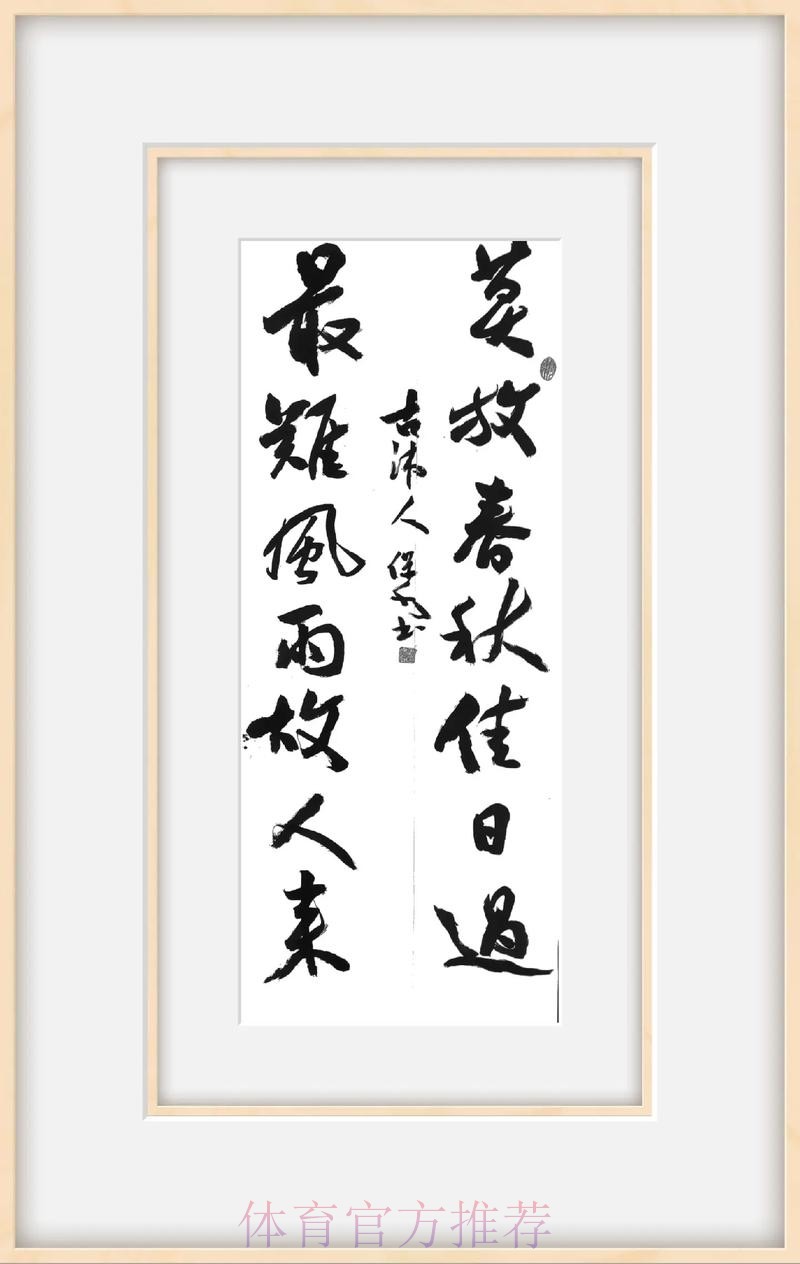 莫放春秋佳日過
最難風雨故人来
古沛人保
书
体育官方推荐